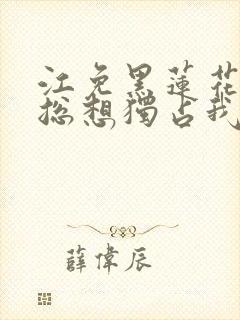 江免黑蓮花
總想獨占我
薛偉辰